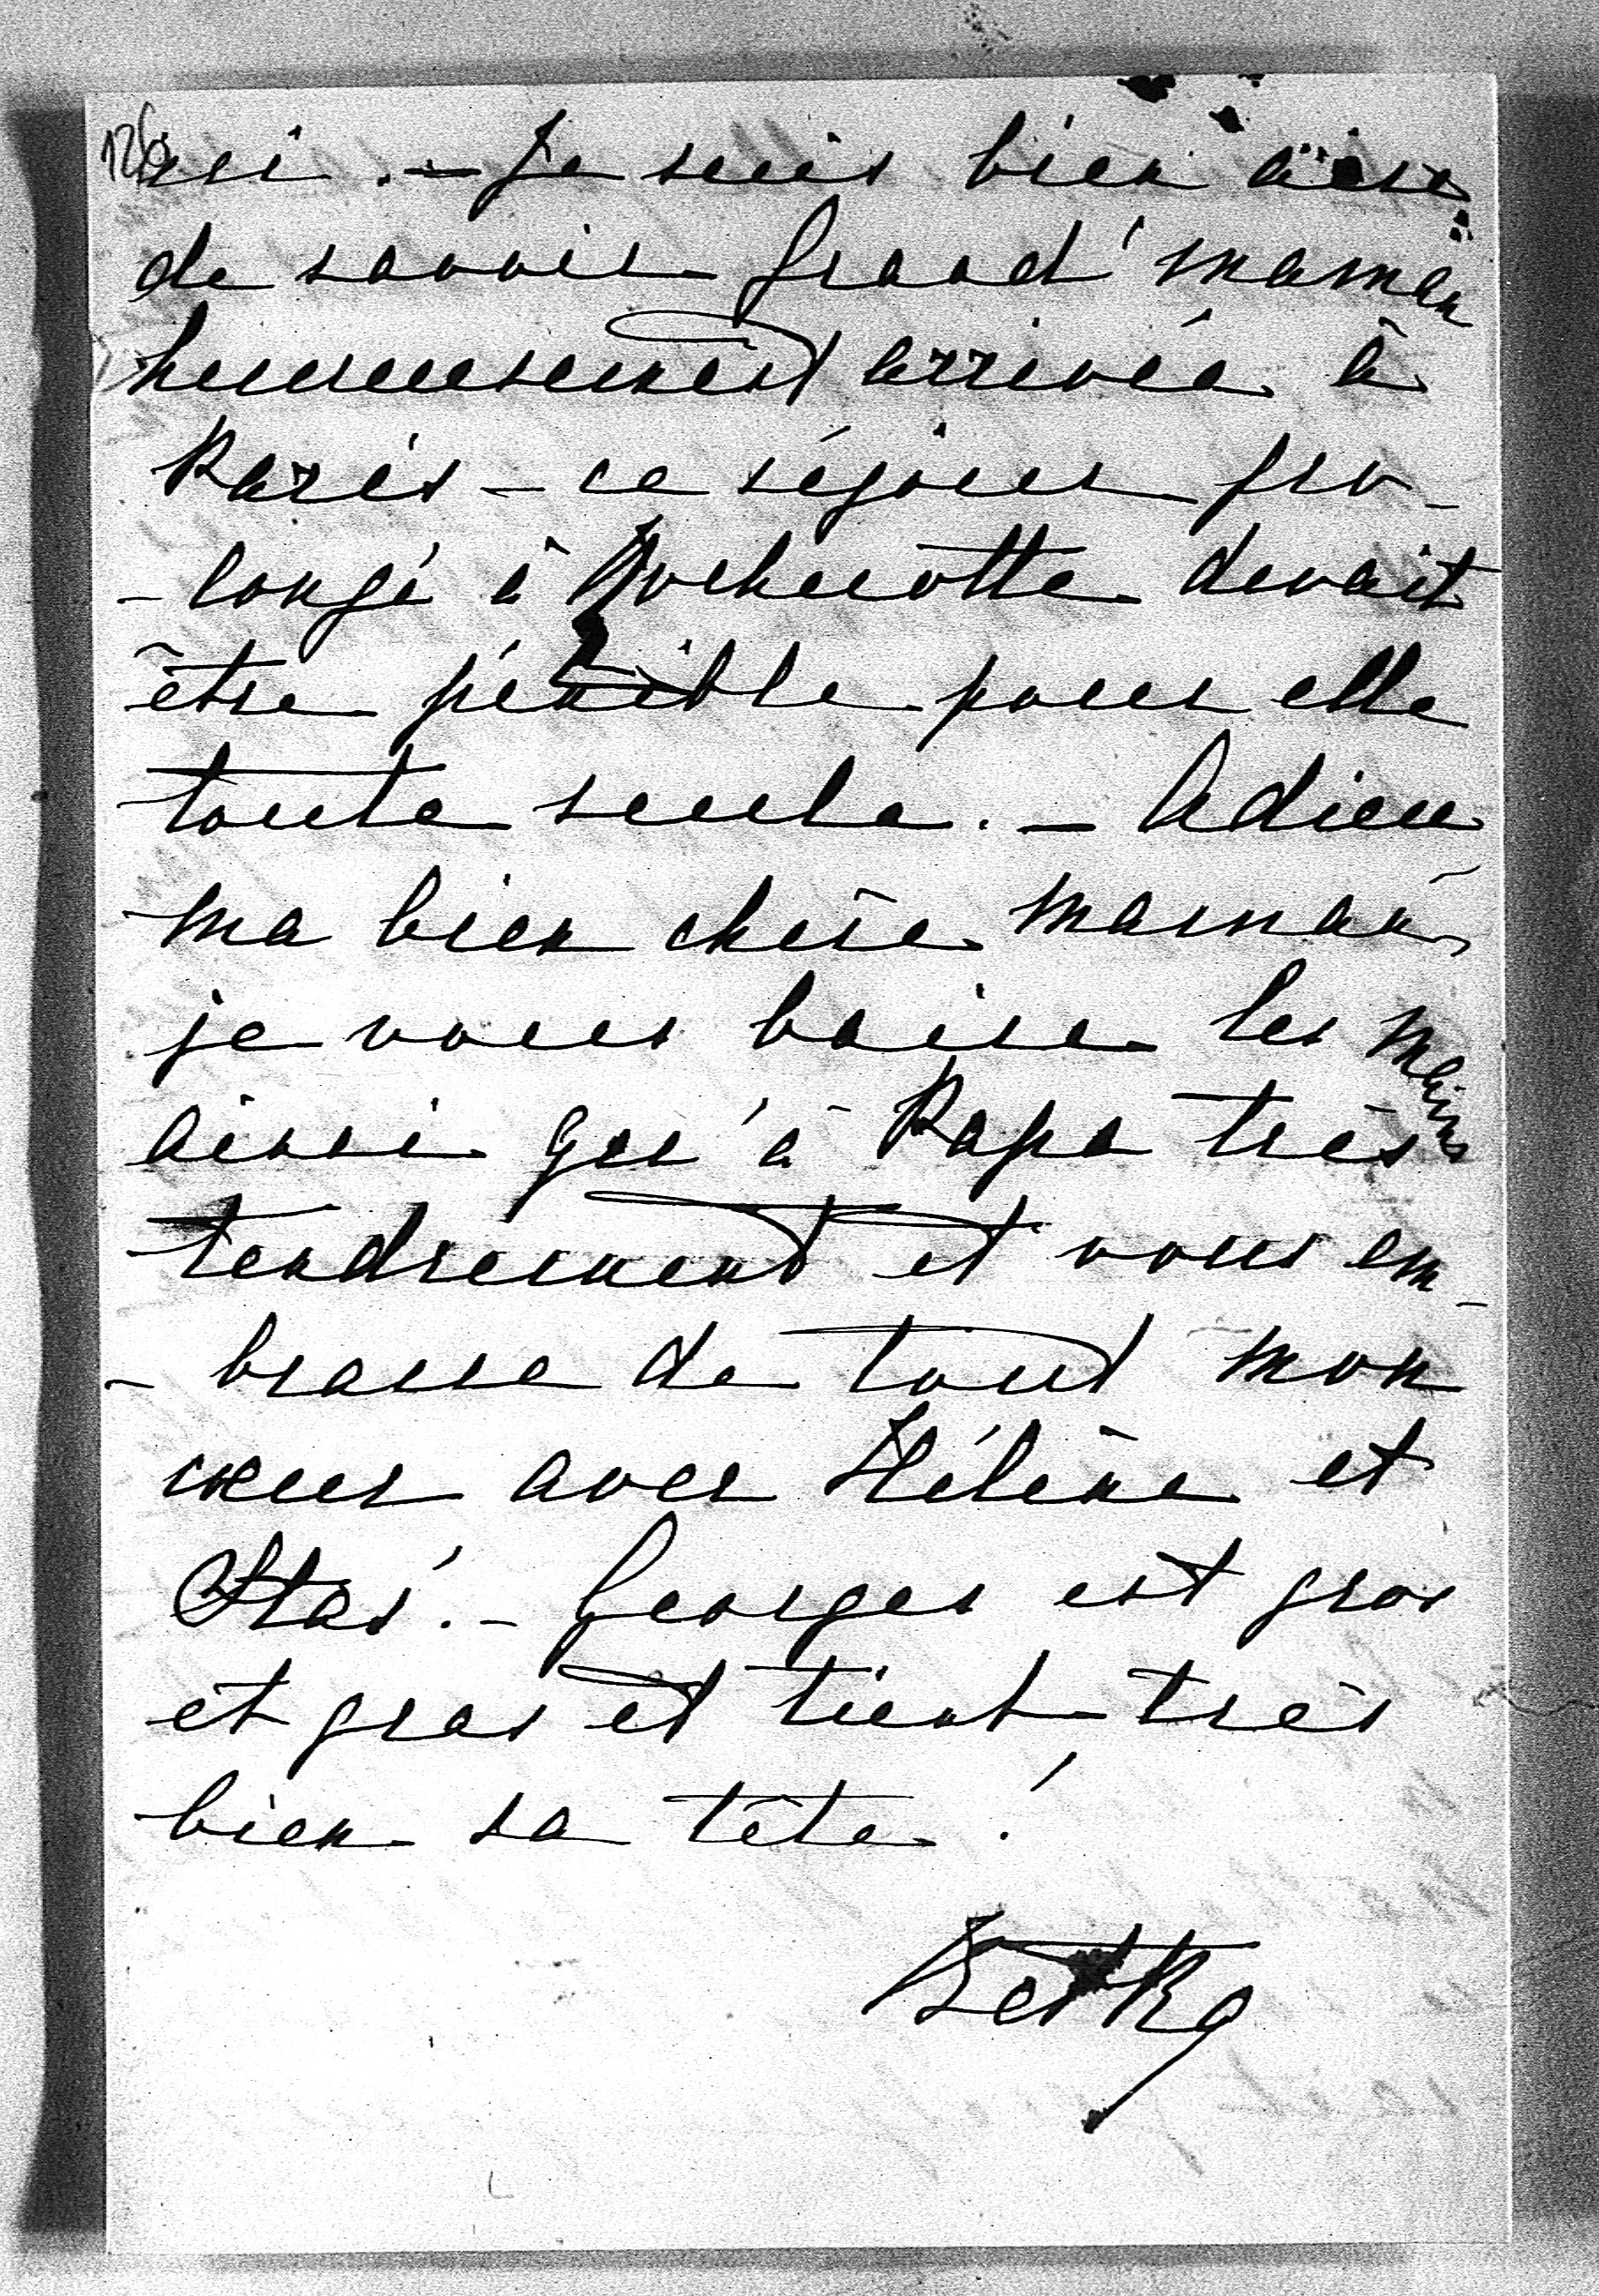 126
usi. — Je suis bien aise
de savoir Grand'maman
heureusement arrivée à
Paris — ce séjour pro-
- longé à Rochecotte devait
être pénible pour elle
toute seule. — Adieu
ma bien chère maman,
je vous baise les mains
ainsi qu'à Papa très
tendrement et vous em-
- brasse de tout mon
cœur avec Hélène et
Stas'. — Georges est gros
et gras et tient très
bien sa tête!
Betka